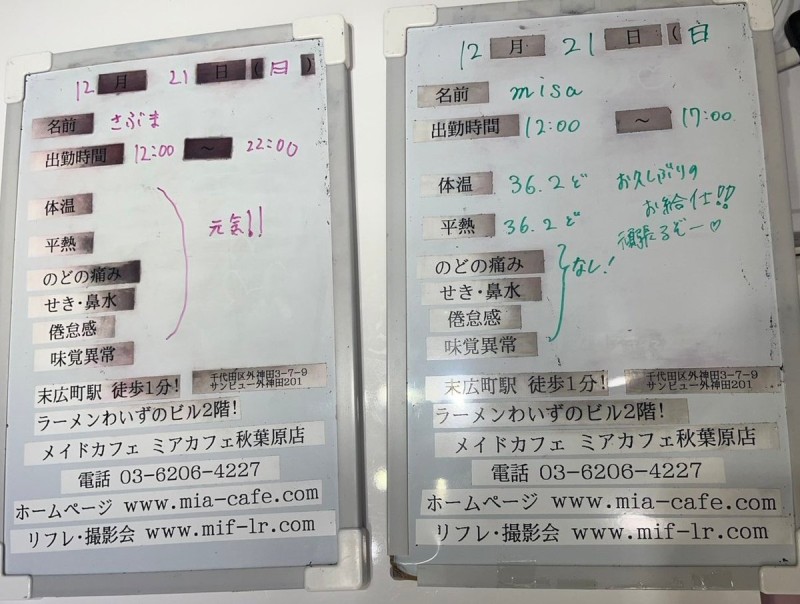 12 月 21 日 (日)
名前 さぶま
出勤時間 12:00 ~ 22:00
体温
平熱
のどの痛み
せき・鼻水
倦怠感
味覚異常
元気!!
末広町駅 徒歩1分!
千代田区外神田3-7-9
サンビュー外神田201
ラーメンわいずのビル2階!
メイドカフェ ミアカフェ秋葉原店
電話 03-6206-4227
ホームページ www.mia-cafe.com
リフレ・撮影会 www.mif-lr.com
12 月 21 日 (日
名前 misa
出勤時間 12:00 ~ 17:00
体温 36.2ど
平熱 36.2ど
お久しぶりの
お給仕!!
頑張るぞー♡
のどの痛み
せき・鼻水
倦怠感
味覚異常
なし!
末広町駅 徒歩1分!
千代田区外神田3-7-9
サンビュー外神田201
ラーメンわいずのビル2階!
メイドカフェ ミアカフェ秋葉原店
電話 03-6206-4227
ホームページ www.mia-cafe.com
リフレ・撮影会 www.mif-lr.com